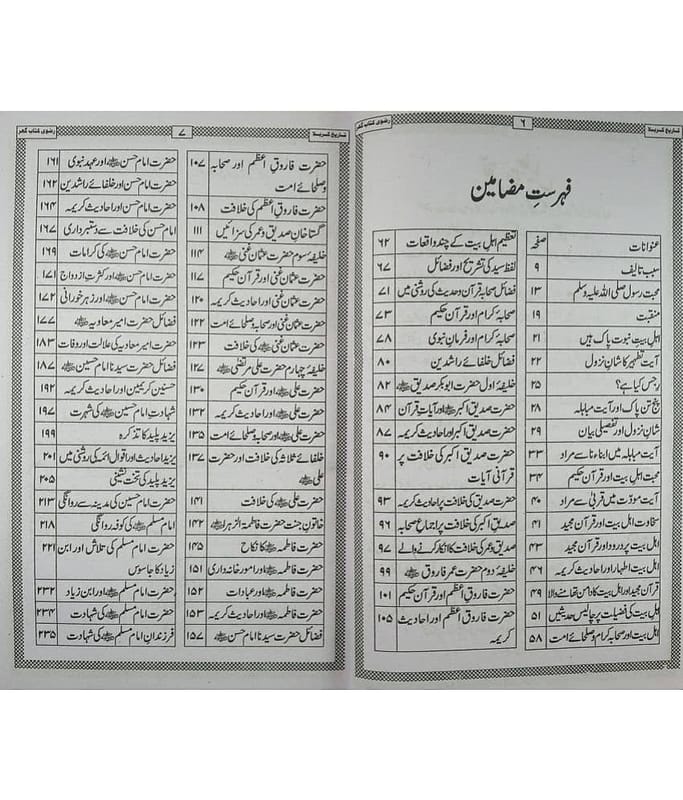 تاریخ کربلا
۶
رضوی کتاب گھر
فہرستِ مضامین
عنوانات صفحہ
سبب تالیف ۹
محبت رسول صلی اللہ علیہ وسلم ۱۳
منقبت ۱۹
اہل بیتِ نبوت پاک ہیں ۲۱
آیت تطہیر کا شانِ نزول ۲۲
رجس کیا ہے؟ ۲۵
پنج تن پاک اور آیت مباہلہ ۲۸
شانِ نزول اور تفصیلی بیان ۲۹
آیت مباہلہ میں ابناءنا سے مراد ۳۳
محبت اہل بیت اور قرآن حکیم ۳۴
آیت مودّت میں قربیٰ سے مراد ۴۰
سخاوت اہل بیت اور قرآن مجید ۴۱
اہل بیت پر درود اور قرآن مجید ۴۳
اہل بیت اطہار اور احادیث کریمہ ۴۶
قرآن مجید اور اہل بیت کا دامن تھامنے والا ۴۹
اہل بیت کی فضیلت پر چالیس حدیثیں ۵۱
اہل بیت اور صحابہ کرام و صلحائے امت ۵۸
تعظیم اہل بیت کے چند واقعات ۶۲
لفظ سید کی تشریح اور فضائل ۶۷
فضائل صحابہ قرآن و حدیث کی روشنی میں ۷۱
صحابہ کرام اور قرآن حکیم ۷۳
صحابہ کرام اور فرمانِ نبوی ۷۸
فضائل خلفائے راشدین ۸۰
خلیفۂ اول حضرت ابوبکر صدیق ؓ ۸۲
حضرت صدیق اکبر ؓ اور آیات قرآن ۸۴
حضرت صدیق اکبر اور احادیث کریمہ ۸۷
حضرت صدیق اکبر کی خلافت پر قرآنی آیات ۹۰
حضرت صدیق کی خلافت پر احادیث کریمہ ۹۳
صدیق اکبر کی خلافت پر اجماع صحابہ ۹۶
صدیق و عمر کی خلافت کا انکار کرنے والے ۹۷
خلیفۂ دوم حضرت عمر فاروق ؓ ۹۹
حضرت فاروق اعظم اور قرآن حکیم ۱۰۱
حضرت فاروق اعظم اور احادیث کریمہ ۱۰۵
تاریخ کربلا
۷
رضوی کتاب گھر
حضرت فاروق اعظم اور صحابہ و صلحائے امت ۱۰۷
حضرت فاروق اعظم کی خلافت ۱۰۸
گستاخانِ صدیق و عمر کی سزائیں ۱۱۱
خلیفۂ سوم حضرت عثمان غنی ؓ ۱۱۴
حضرت عثمان غنی اور قرآن حکیم ۱۱۷
حضرت عثمان غنی اور احادیث کریمہ ۱۲۰
حضرت عثمان غنی اور صحابہ و صلحائے امت ۱۲۲
حضرت عثمان غنی ؓ کی خلافت ۱۲۳
خلیفۂ چہارم حضرت علی مرتضٰی ؓ ۱۲۷
حضرت علی ؓ اور قرآن حکیم ۱۳۰
حضرت علی ؓ اور احادیث کریمہ ۱۳۲
حضرت علی ؓ اور صحابہ و صلحائے امت ۱۳۵
خلفائے ثلاثہ کی خلافت اور حضرت علی ؓ ۱۳۷
حضرت علی ؓ کی خلافت ۱۴۱
خاتونِ جنت حضرت فاطمۃ الزہرا ؓ ۱۴۲
حضرت فاطمہ ؓ کا نکاح ۱۴۵
حضرت فاطمہ ؓ اور امور خانہ داری ۱۵۱
حضرت فاطمہ ؓ اور عبادات ۱۵۲
حضرت فاطمہ ؓ اور احادیث کریمہ ۱۵۳
فضائل حضرت سیدنا امام حسن ؓ ۱۵۷
حضرت امام حسن ؓ اور عہد نبوی ۱۶۱
حضرت امام حسن اور خلفائے راشدین ۱۶۲
حضرت امام حسن اور احادیث کریمہ ۱۶۴
امام حسن کی خلافت سے دستبرداری ۱۶۷
حضرت امام حسن ؓ کی کرامات ۱۶۹
حضرت امام حسن ؓ اور کثرتِ ازدواج ۱۷۱
حضرت امام حسن ؓ اور زہر خورانی ۱۷۲
فضائل حضرت امیر معاویہ ؓ ۱۷۷
حضرت امیر معاویہ کی علالت اور وفات ۱۸۳
فضائل حضرت سیدنا امام حسین ؓ ۱۸۷
حسنین کریمین اور احادیث کریمہ ۱۹۲
شہادتِ امام حسین ؓ کی شہرت ۱۹۷
یزید پلید کا تذکرہ ۱۹۹
یزید احادیث اور اقوال ائمہ کی روشنی میں ۲۰۱
یزید پلید کی تخت نشینی ۲۰۵
حضرت امام حسین کی مدینہ سے روانگی ۲۱۳
امام مسلم ؓ کی کوفہ روانگی ۲۱۸
حضرت امام مسلم کی تلاش اور ابن زیاد کا جاسوس ۲۲۱
حضرت امام مسلم ؓ اور ابن زیاد ۲۳۲
حضرت امام مسلم ؓ کی شہادت ۲۳۴
فرزندانِ امام مسلم ؓ کی شہادت ۲۳۵